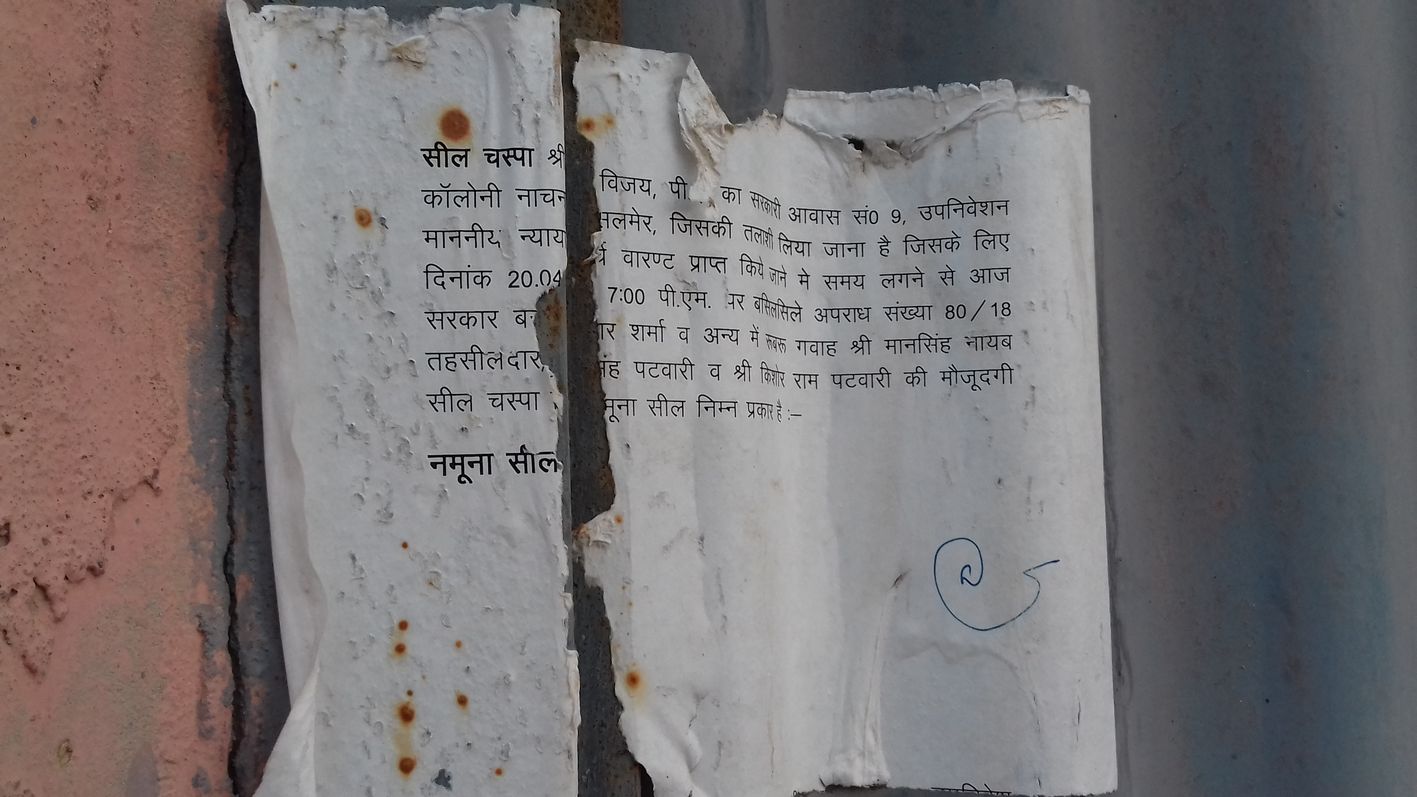 सील चस्पा श्री विजय, पी. का सरकारी आवास सं0 9, उपनिवेशन
कॉलोनी नाचन सलमेर, जिसकी तलाशी लिया जाना है जिसके लिए
माननीय न्याय र्च वारण्ट प्राप्त किये जाने मे समय लगने से आज
दिनांक 20.04 7:00 पी.एम. पर बसिलसिले अपराध संख्या 80/18
सरकार ब ार शर्मा व अन्य में रूबरू गवाह श्री मानसिंह नायब
तहसीलदार, ंह पटवारी व श्री किशोर राम पटवारी की मौजूदगी
सील चस्पा मूना सील निम्न प्रकार है :–
नमूना सील